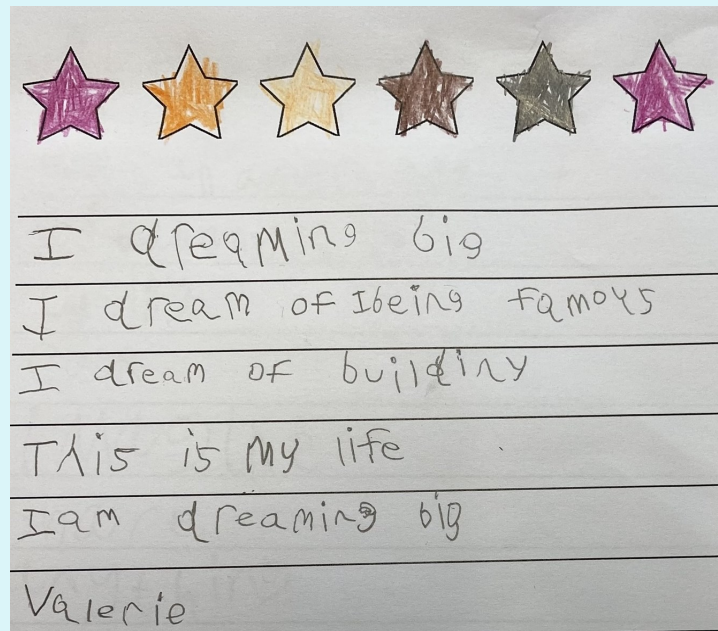 I dreaming big
I dream of Ibeing famoys
I dream of buildiny
This is my life
I am dreaming big
Valerie